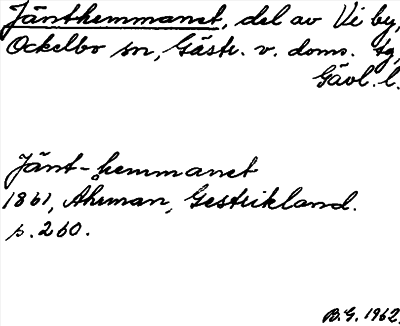 Jänthemmanet, del av Vi by,
Ockelbo sn, Gästr. v. doms. tg,
Gävl. l.
Jänt-hemmanet
1861, Ahrman, Gestrikland.
s. 260.
B.G. 1962.